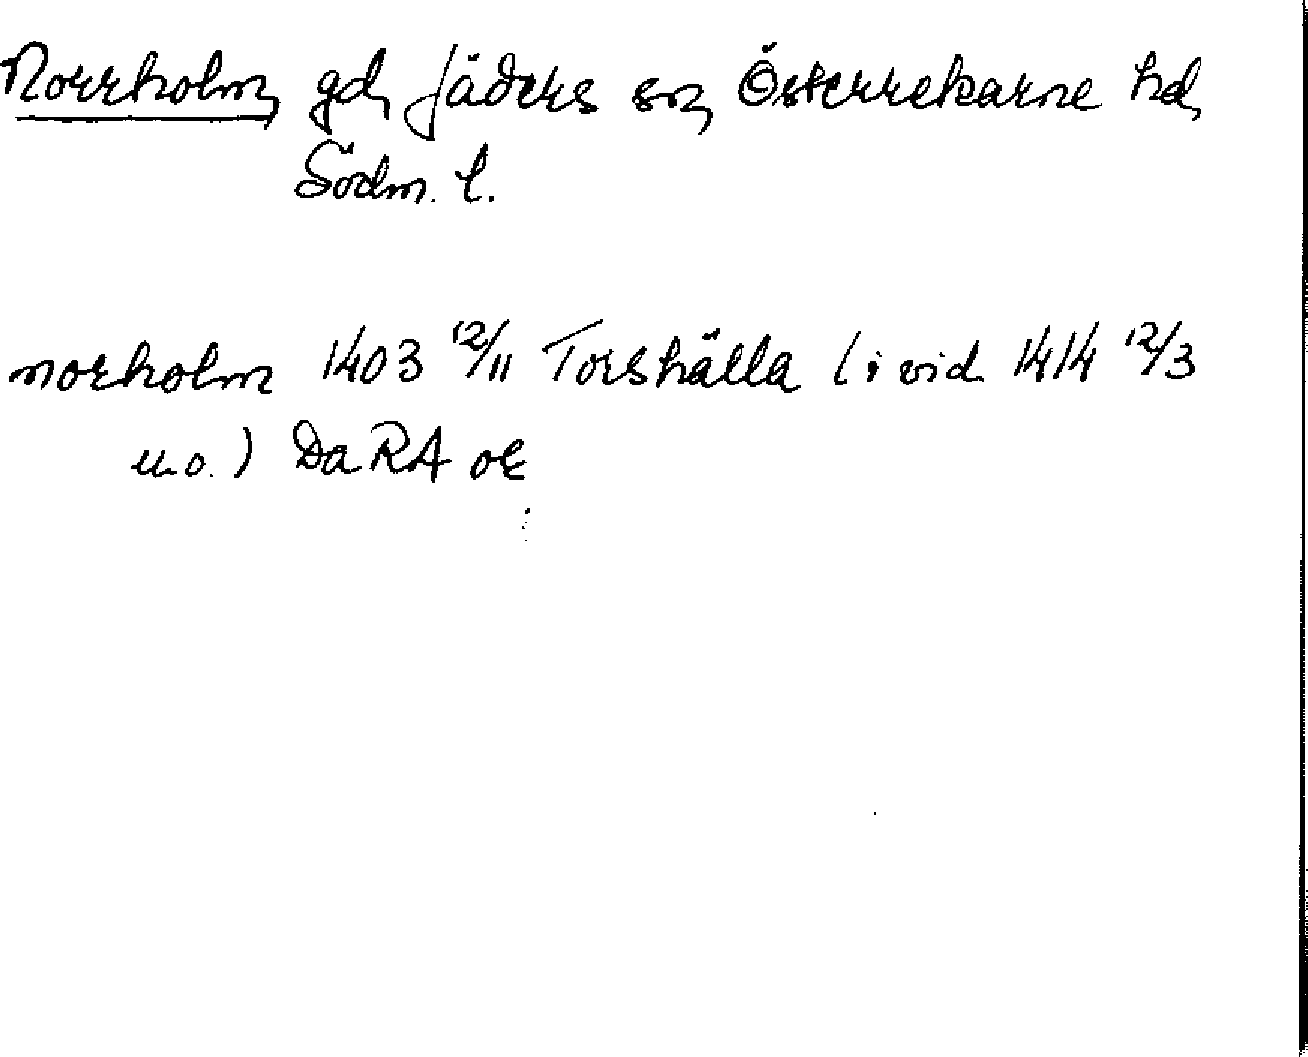 Norrholm, gd, Jäders sn, Österrekarne hd,
Södm. l.
norholm 1403 12/11 Torshälla (i vid. 1414 12/3
u.o.) Da RA or